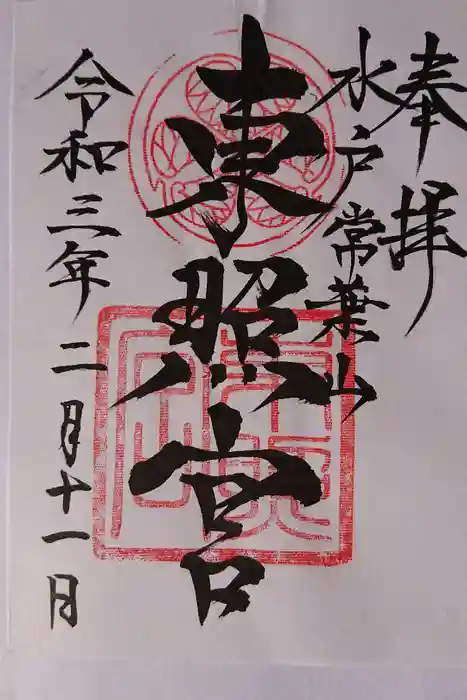 奉拝
水戸常葉山
東照宮
令和三年二月十一日